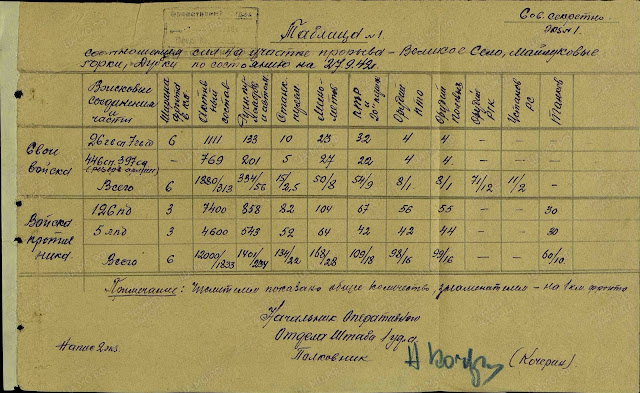 Сов. секретно
экз №1
Таблица №1
соотношения сил на участке прорыва - Великое Село, Майлуковы
горки, Дубки по состоянию на 27.9.42г
Войсковые соединения и части | Ширина фронта в км. | Активный состав | Станк. пулем | Миномёты | ПТР и 20м/м пушек | Орудий ПТО | Орудий полевых | Орудий РГК | Установ. РС | Танков
Свои войска
26гвсп 7гвсд | 6 | 1111 | 133 | 10 | 23 | 32 | 4 | 4 | - | - | -
446сп. 397сд | - | 769 | 201 | 5 | 27 | 22 | 4 | 4 | - | - | -
(резерв армии)
Всего | 6 | 1880/313 | 334/56 | 15/2,5 | 50/8 | 54/9 | 8/1 | 8/1 | 71/12 | 11/2 | -
Войска противника
126пд | 3 | 7400 | 858 | 82 | 104 | 67 | 56 | 55 | - | - | 30
5лпд | 3 | 4600 | 543 | 52 | 64 | 42 | 42 | 44 | - | - | 30
Всего | 6 | 12000/ | 1401/234 | 134/22 | 168/28 | 109/18 | 98/16 | 99/16 | - | - | 60/10
Примечание: Числителем показано общее количество, знаменателем - на 1 км. фронта
Начальник Оперативного
Отдела Штаба 1 уд.а
Полковник (Кочергин)
Напис 2 экз.